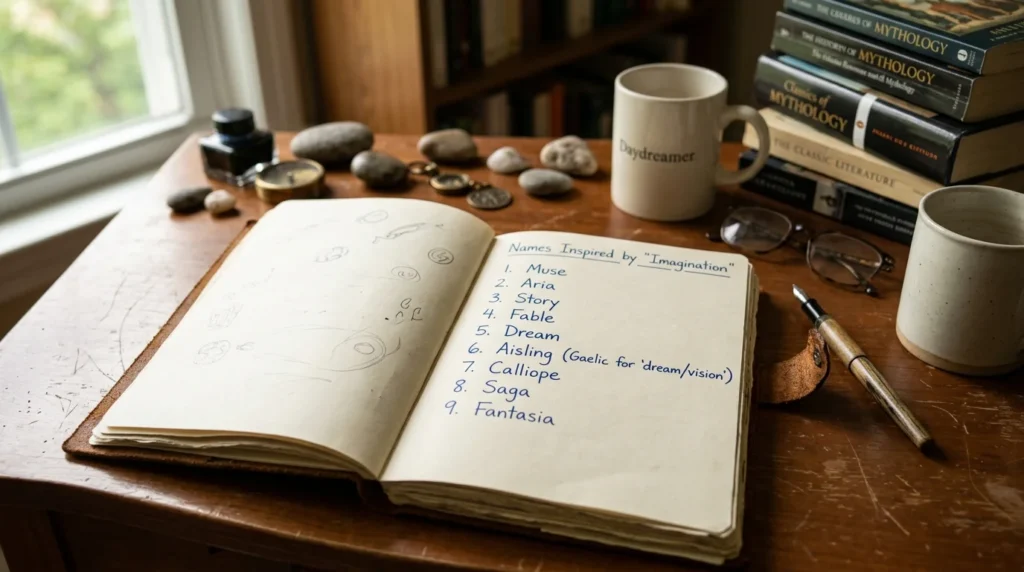 Names Inspired by "Imagination"
1. Muse
2. Aria
3. Story
4. Fable
5. Dream
6. Aisling (Gaelic for 'dream/vision')
7. Calliope
8. Saga
9. Fantasia
Daydreamer
MYTHOLOGY
MYTHOLOGY
Classics of
MYTHOLOGY
THE CLASSIC LITERATURE